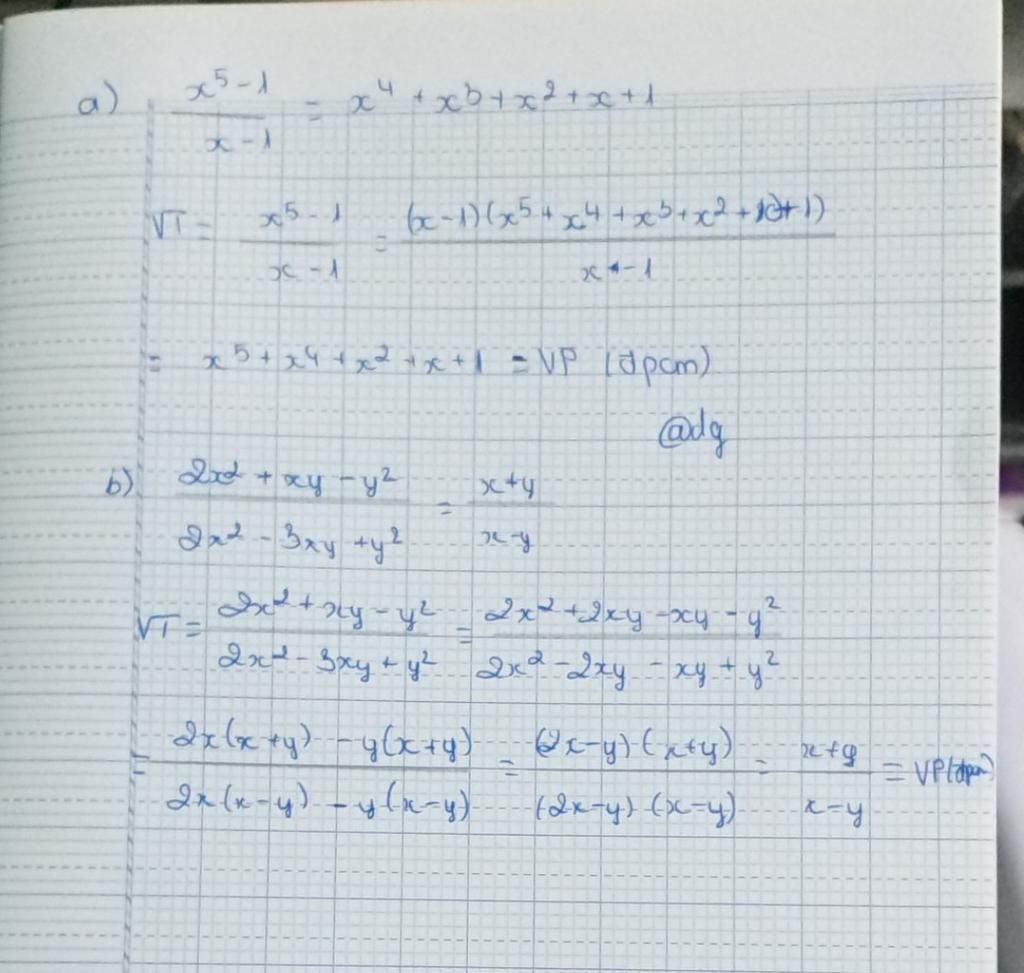 a) x⁵ - 1 / x - 1 = x⁴ + x³ + x² + x + 1
VT = x⁵ - 1 / x - 1 = (x - 1)(x⁵ + x⁴ + x³ + x² + + 1) / x - 1
= x⁵ + x⁴ + x² + x + 1 = VP (đpcm)
@dg
b) 2x² + xy - y² / 2x² - 3xy + y² = x+y / x-y
VT = 2x² + xy - y² / 2x² - 3xy + y² = 2x² + 2xy - xy - y² / 2x² - 2xy - xy + y²
= 2x(x+y) - y(x+y) / 2x(x-y) - y(x-y) = (2x-y) (x+y) / (2x-y) (x-y) = x+y / x-y = VP (đpcm)